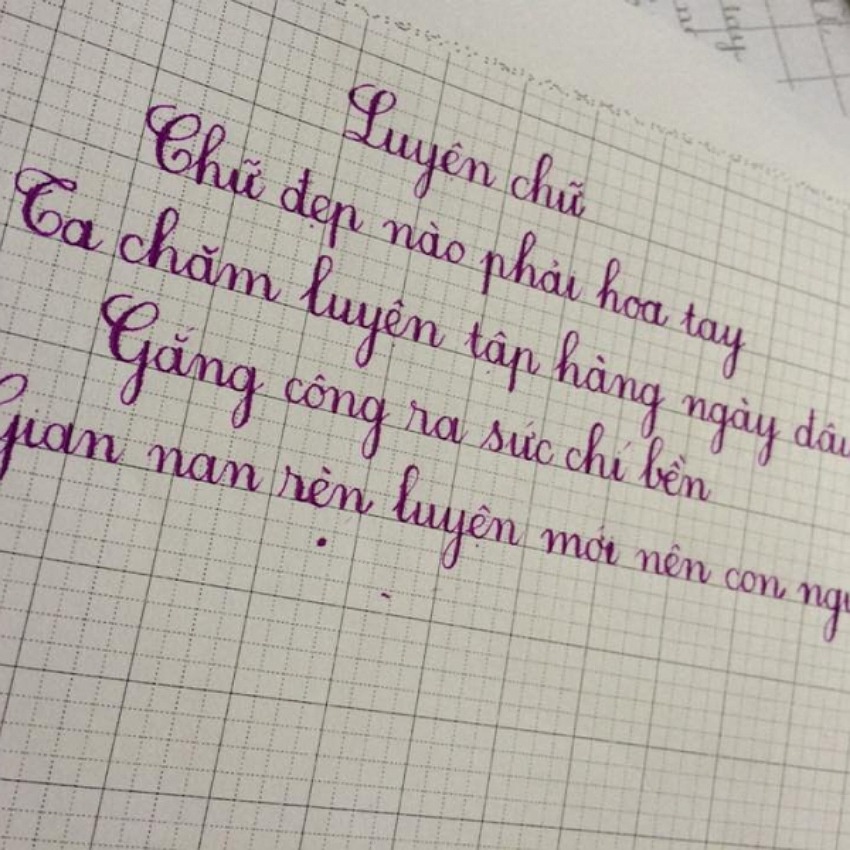 Luyện chữ
Chữ đẹp nào phải hoa tay
Ta chăm luyện tập hàng ngày đâu
Gắng công ra sức chí bền
Gian nan rèn luyện mới nên con
tay